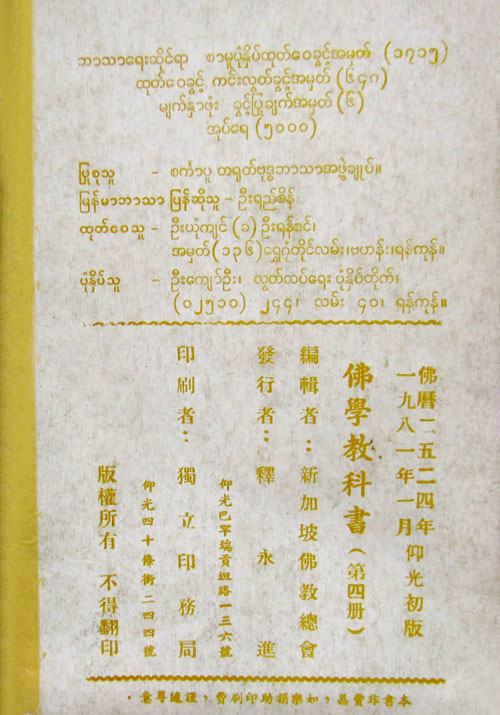 ဘာသာရေးဆိုင်ရာ စာမူပုံနှိပ်ထုတ်ဝေခွင့်အမှတ် (၁၇၁၅)
ထုတ်ဝေခွင့် ကင်းလွတ်ခွင့်အမှတ် (၆၄၈)
မျက်နှာဖုံး ခွင့်ပြုချက်အမှတ် (၆)
အုပ်ရေ (၅၀၀၀)
ပြုစုသူ – စင်္ကာပူ တရုတ်ဗုဒ္ဓဘာသာအဖွဲ့ချုပ်။
မြန်မာဘာသာ ပြန်ဆိုသူ – ဦးရည်စိန်
ထုတ်ဝေသူ – ဦးယုံကျင် (ခ) ဦးရန်စင်၊
အမှတ် (၁၃၆) ရွှေဂုံတိုင်လမ်း၊ဗဟန်း၊ရန်ကုန်။
ပုံနှိပ်သူ – ဦးကျော်ဦး၊ လွတ်လပ်ရေး ပုံနှိပ်တိုက်၊
(၀၂၅၁၀) ၂၄၄၊ လမ်း ၄၀၊ ရန်ကုန်။
佛曆二五二四年
一九八一年一月 仰光初版
佛學教科書(第四册)
編輯者:新加坡佛教總會
發行者:釋永進
仰光巴罕瑞貢迴路一三六號
印刷者:獨立印務局
仰光四十條街二四四號
版權所有 不得翻印
本書非賣品,如樂捐助印刷費,謹隨尊意・